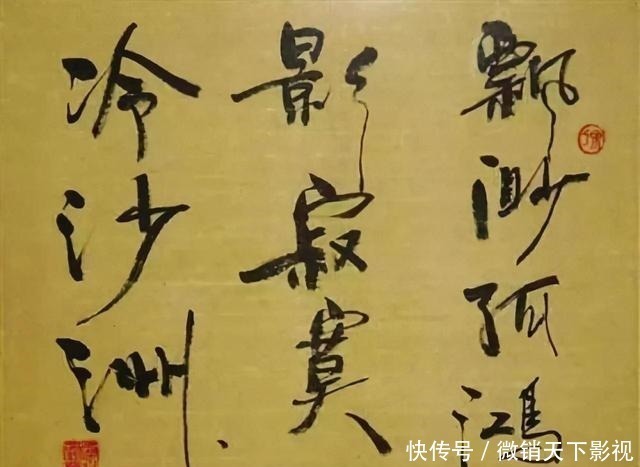 飘渺孤鸿
影寂寞
冷沙洲
快传号/微销天下影视